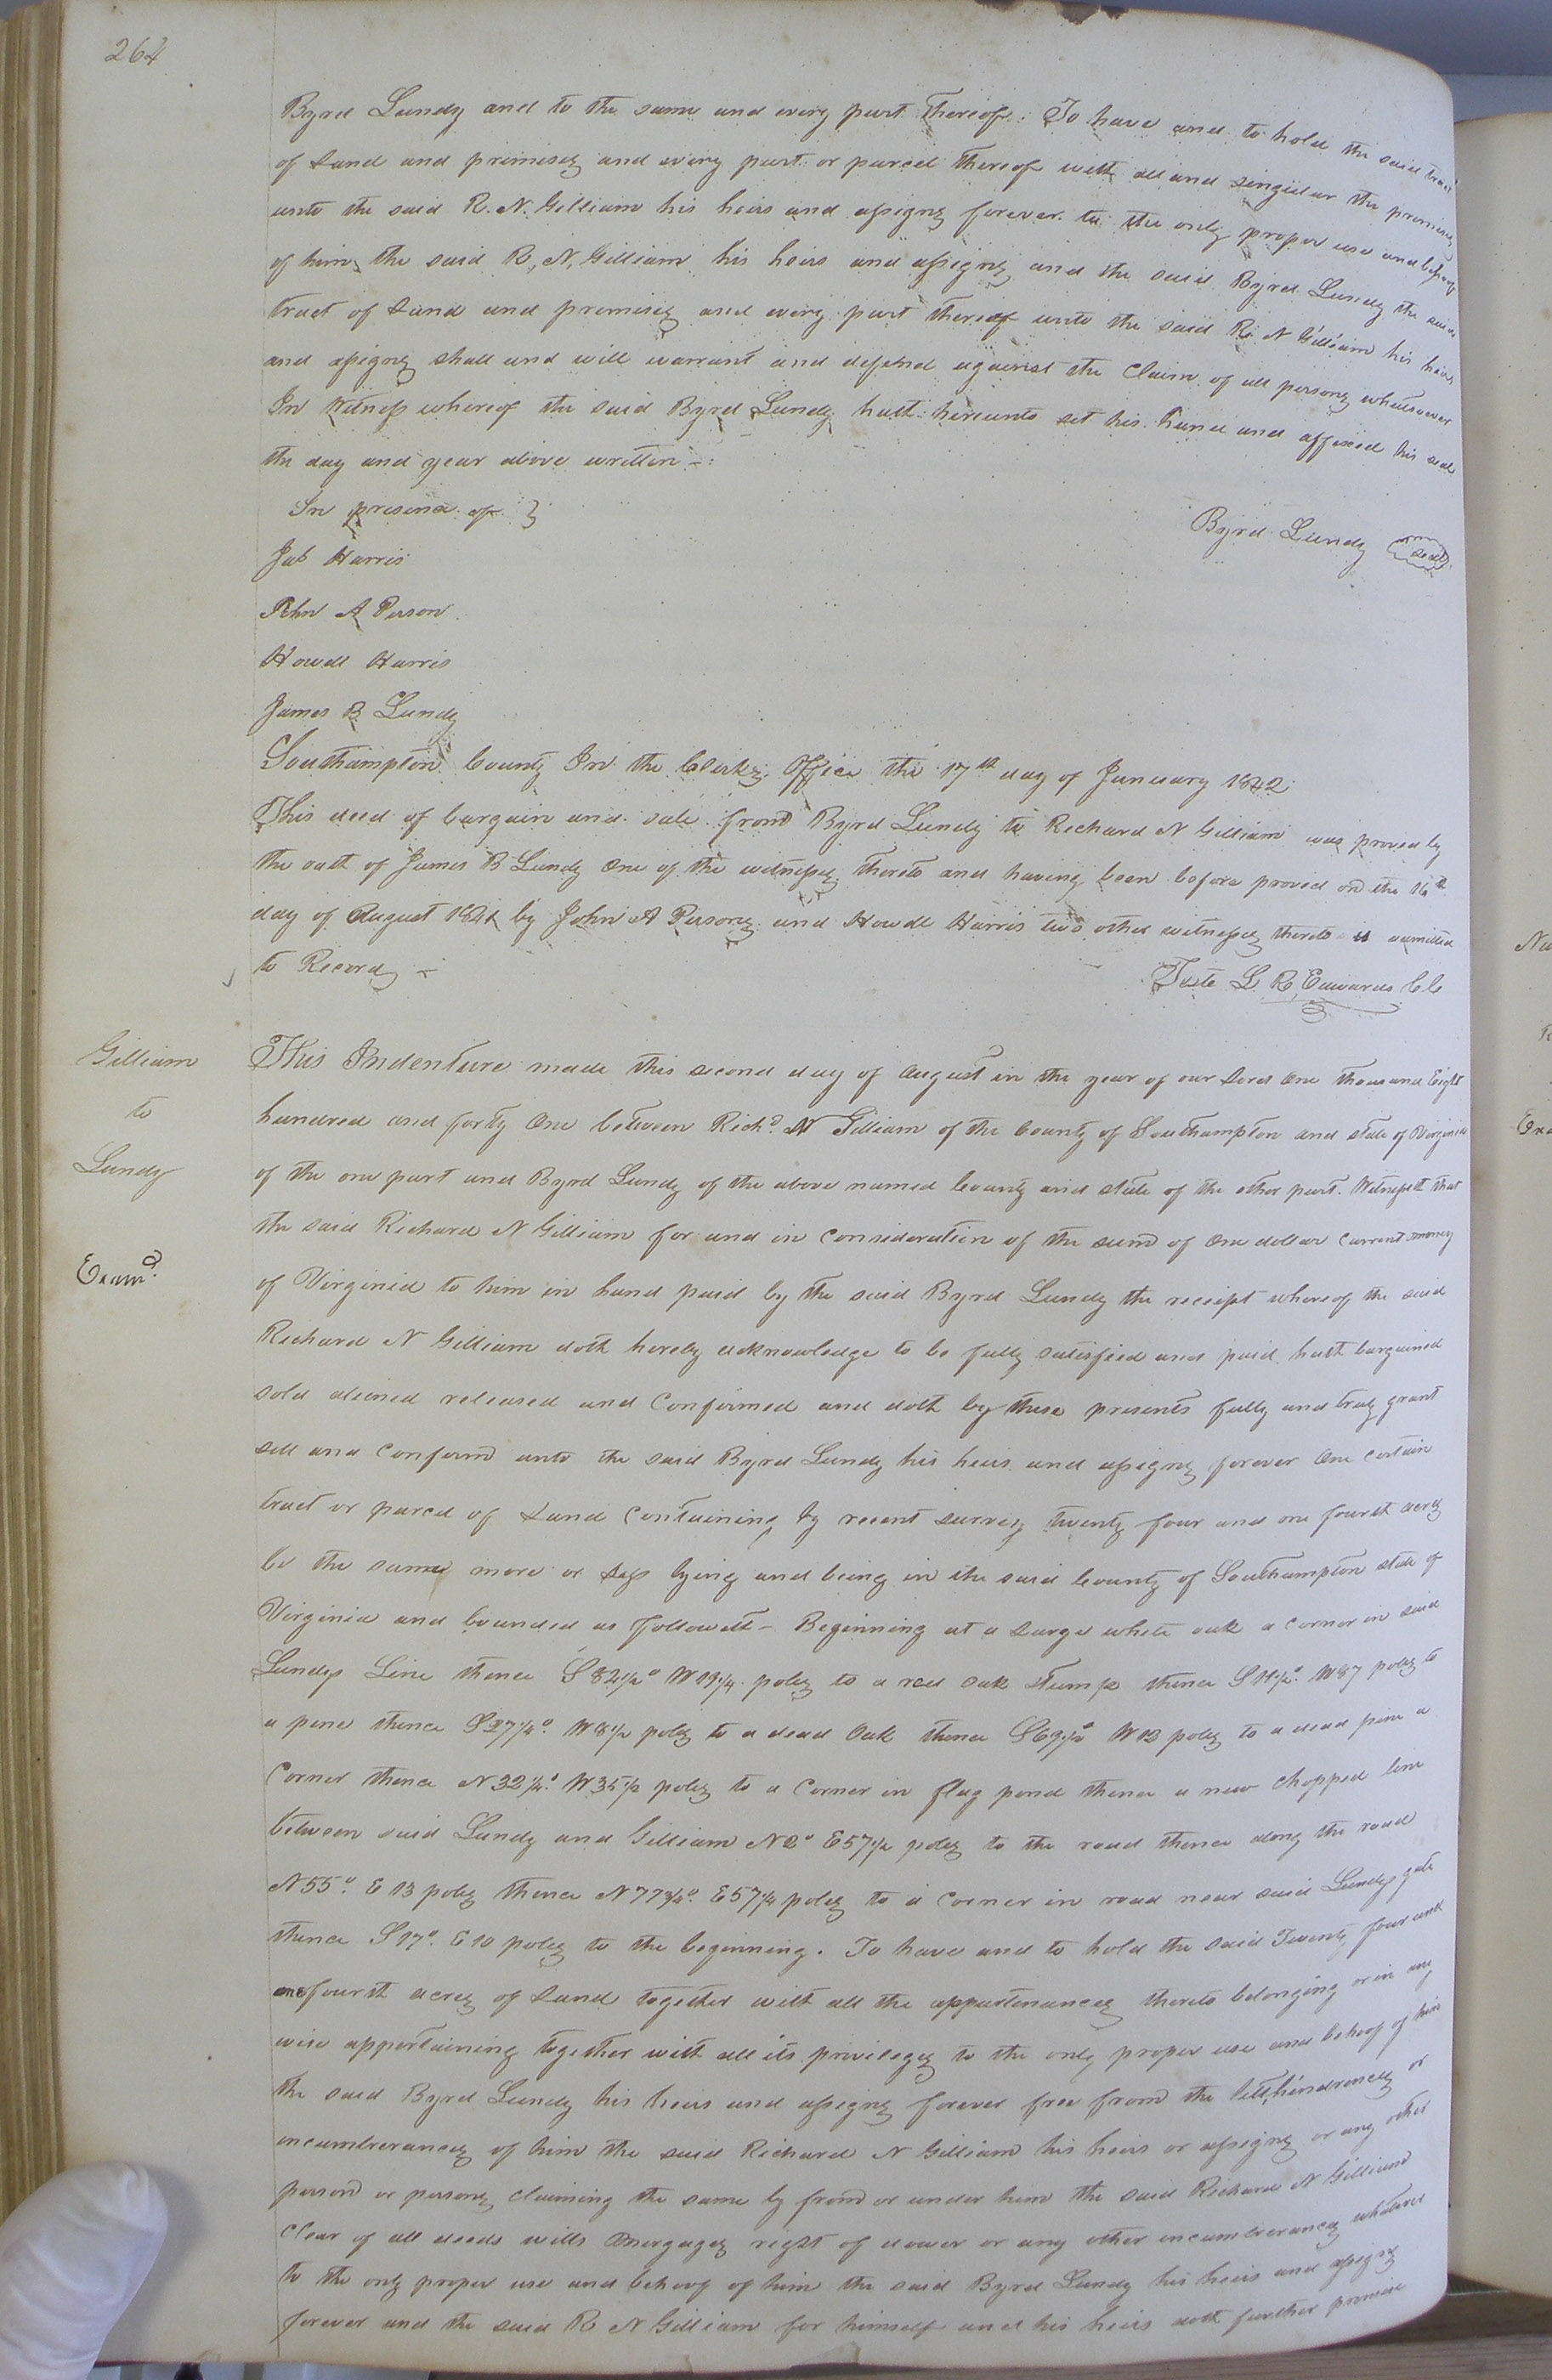 264
Byrd Lundy and to the same and every part thereof: To have and to hold the said tract
of Land and premises and every part or parcel thereof with all and singular the premises
unto the said R. N. Gilliam his heirs and assigns forever to the only proper use and behoof
of him the said R. N. Gilliam his heirs and assigns and the said Byrd Lundy the said
tract of Land and premises and every part thereof unto the said R. N Gilliam his heirs
and assigns shall and will warrant and defend against the Claim of all persons whatsoever
In Witness whereof the said Byrd Lundy hath hereunto set his hand and affixed his seal
the day and year above written -
In presence of }
Byrd Lundy Seal
Jas Harris
John A Person
Howell Harris
James B Lundy
Southampton County In the Clerks Office the 17th day of January 1842
This deed of bargain and sale from Byrd Lundy to Richard N Gilliam was proved by
the oath of James B Lundy One of the witnesses thereto and having been before proved on the 16th
day of August 1841 by John A Persons and Howell Harris two other witnesses thereto is admitted
to Record -
Teste L. R. Edwards Cl C
Gilliam
to
Lundy
Examd.
This Indenture made this second day of August in the year of our Lord One thousand Eight
hundred and forty One between Richd. N Gilliam of the County of Southampton and state of Virginia
of the one part and Byrd Lundy of the above named County and state of the other part. Witnesseth that
the said Richard N Gilliam for and in Consideration of the sum of One dollar Current money
of Virginia to him in hand paid by the said Byrd Lundy the receipt whereof the said
Richard N Gilliam doth hereby acknowledge to be fully satisfied and paid, hath bargained
sold aliened released and Confirmed and doth by these presents fully and truly grant
sell and Confirm unto the said Byrd Lundy his heirs and assigns forever One certain
tract or parcel of Land Containing by recent survey twenty four and one fourth acres
be the same more or Less lying and being in the said County of Southampton state of
Virginia and bounded as followeth - Beginning at a Large white oak a corner in said
Lundys Line thence S 82 1/2° W 19 1/4 poles to a red oak stump thence S 11 1/2° W 87 poles to
a pine thence S 27 1/4° W 8 1/2 poles to a dead Oak thence S 69 1/2° W 12 poles to a dead pine a
Corner thence N 32 1/2° W 35 1/2 poles to a Corner in flag pond thence a new chopped line
between said Lundy and Gilliam N 2° E 57 1/2 poles to the road thence along the road
N 55° E 13 poles thence N 77 3/4° E 57 1/4 poles to a Corner in road near said Lundys gate
thence S 17° E 10 poles to the beginning. To have and to hold the said Twenty four and
one fourth acres of Land together with all the appurtenances thereto belonging or in any
wise appertaining together with all its privileges to the only proper use and behoof of him
the said Byrd Lundy his heirs and assigns forever free from the lett, hindrances or
incumbrances of him the said Richard N Gilliam his heirs or assigns or any other
person or persons claiming the same by from or under him the said Richard N Gilliam
clear of all deeds wills right of dower or any other incumbrances whatever
to the only proper use and behoof of him the said Byrd Lundy his heirs and assigns
forever and the said R N Gilliam for himself and his heirs doth further promise